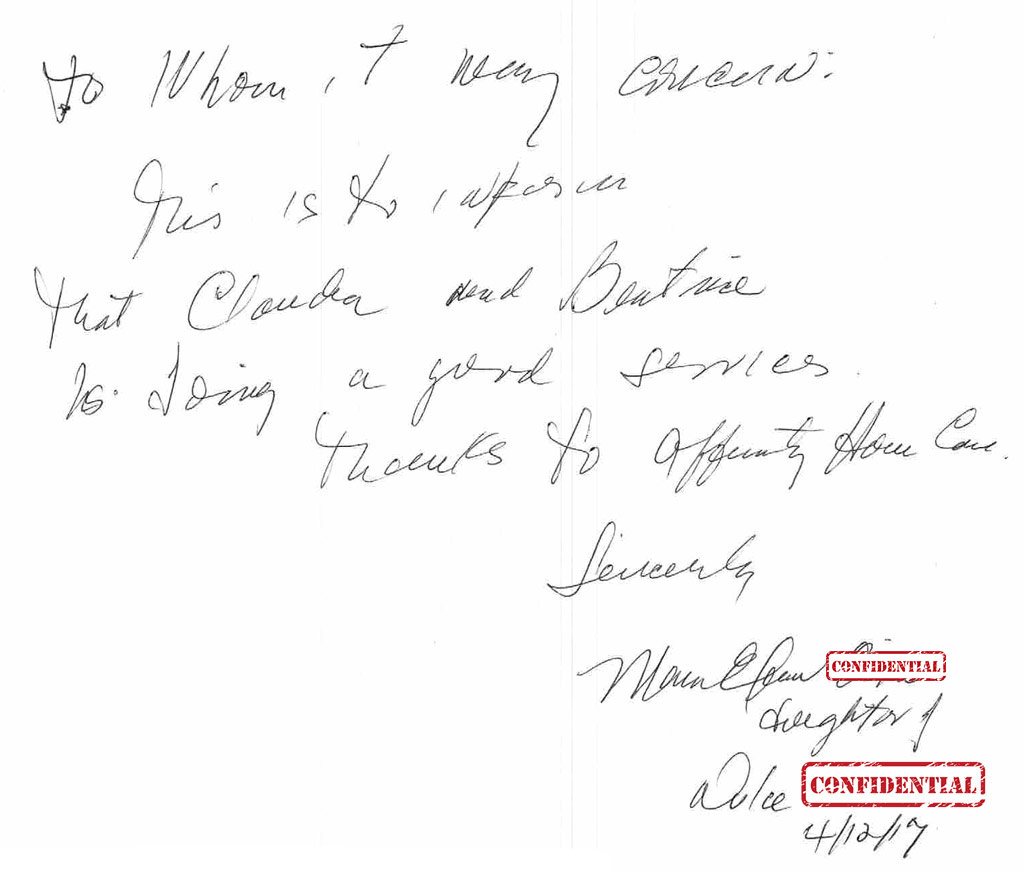 to Whom it may concern:
This is to inform
that Claudia and Beatrice
Is doing a good services.
Thanks to Affinity Home Care.
Sincerely
Maria E CONFIDENTIAL
daughter of
Dulce CONFIDENTIAL
4/12/17